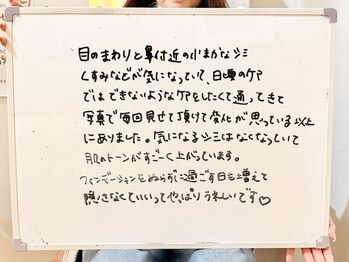 目のまわりと鼻付近の小まかなシミ
くすみなどが気になっていて、日頃のケア
ではできないようなケアをしたくて通ってきて
写真で毎回見せて頂けて変化が思っている以上
にありました。気になるシミはなくなっていて
肌のトーンがすごーく上がっています。
ファンデーションをぬらずに過ごす日も増えて
隠さなくていいってやっぱりうれしいです♡